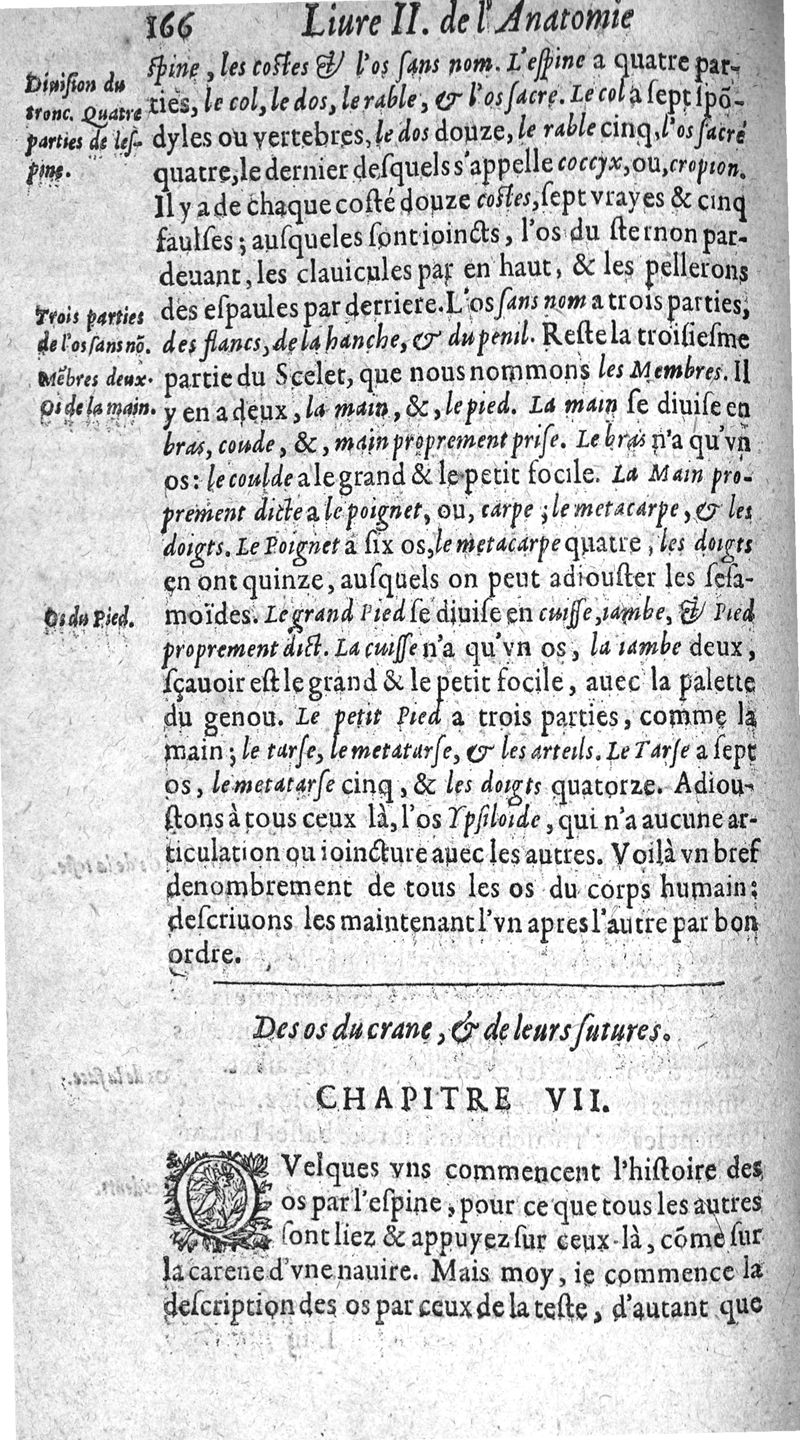 166 Liure II. de l'Anatomie
Diuiſion du
tronc. Quatre
parties de leſ-
pine.
ſpine, les coſtes & l'os ſans nom. L'eſpine a quatre par-
ties, le col, le dos, le rable, & l'os ſacre. Le col a ſept ſpõ-
dyles ou vertebres, le dos douze, le rable cinq, l'os ſacré
quatre, le dernier deſquels s'appelle coccyx, ou, cropion.
Il y a de chaque coſté douze coſtes, ſept vrayes & cinq
faulſes; auſqueles ſont ioincts, l'os du ſternon par-
deuant, les clauicules par en haut, & les pellerons
des eſpaules par derriere. L'os ſans nom a trois parties,
des flancs, de la hanche, & du penil. Reſte la troiſieſme
partie du Scelet, que nous nommons les Membres. Il
y en a deux, la main, &, le pied. La main ſe diuiſe en
bras, coude, &, main proprement priſe. Le bras n'a qu'vn
os: le coulde a le grand & le petit focile. La Main pro-
prement dicte a le poignet, ou, carpe; le metacarpe, & les
doigts. Le Poignet a ſix os, le metacarpe quatre, les doigts
en ont quinze, auſquels on peut adiouſter les ſeſa-
moïdes. Le grand Pied ſe diuiſe en cuiſſe, iambe, & Pied
proprement dict. La cuiſſe n'a qu'vn os, la iambe deux,
ſçauoir eſt le grand & le petit focile, auec la palette
du genou. Le petit Pied a trois parties, comme la
main; le tarſe, le metatarſe, & les arteils. Le Tarſe a ſept
os, le metatarſe cinq, & les doigts quatorze. Adiou-
ſtons à tous ceux là, l'os Ypſiloïde, qui n'a aucune ar-
ticulation ou ioincture auec les autres. Voilà vn bref
denombrement de tous les os du corps humain;
deſcriuons les maintenant l'vn apres l'autre par bon
ordre.
Trois parties
de l'os ſans nõ.
Mẽbres deux.
Os de la main.
Os du Pied.
Des os du crane, & de leurs ſutures.
CHAPITRE VII.
QVelques vns commencent l'hiſtoire des
os par l'eſpine, pour ce que tous les autres
ſont liez & appuyez ſur ceux-là, cõme ſur
la carene d'vne nauire. Mais moy, ie commence la
deſcription des os par ceux de la teſte, d'autant que